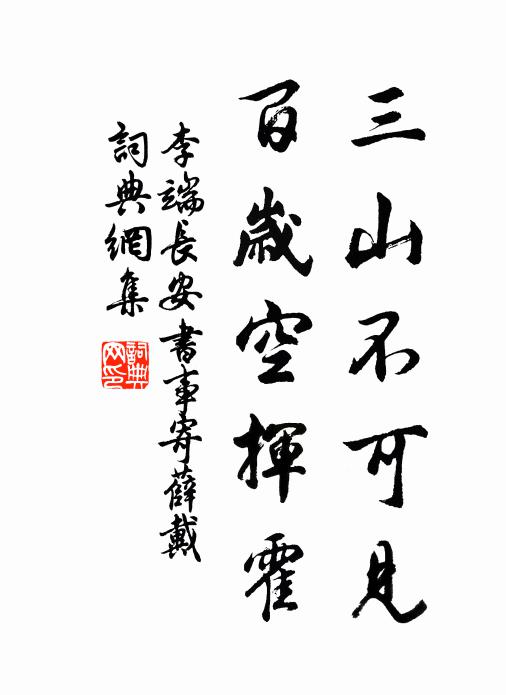 三山不可見
百歲空揮霍
李端長安書事寄薛戴
詞典網集
詞典
网印